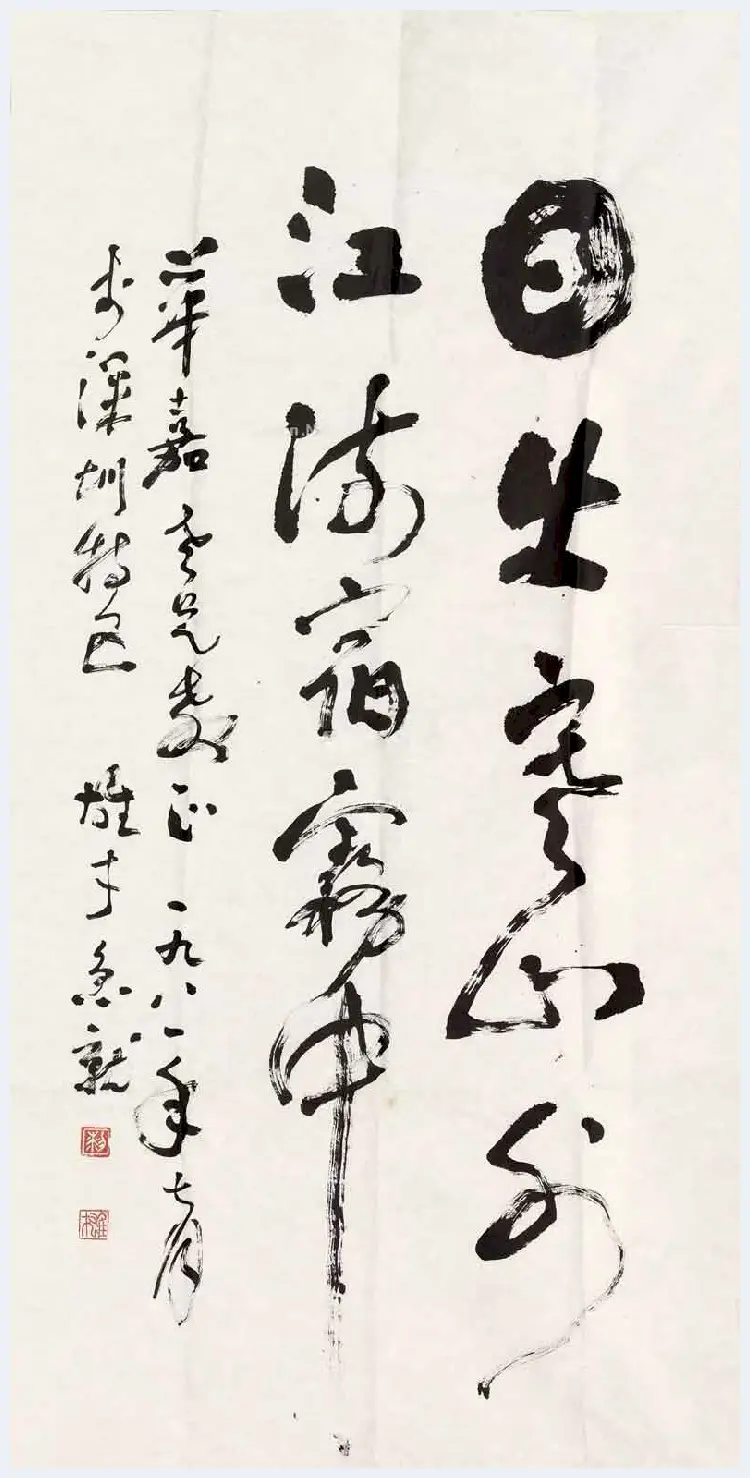 日出寒山外
江流宿霧中
華嘉老兄教正 一九八一年七月
於深圳特區 雄才急就